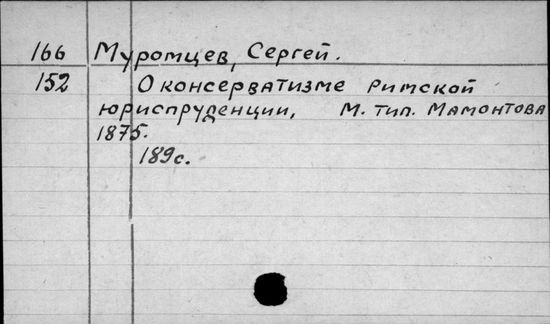 166 Муромцев, Сергей.
152 О консерватизме римской
юриспруденции, М. тип. Мамонтова
1875.
189с.